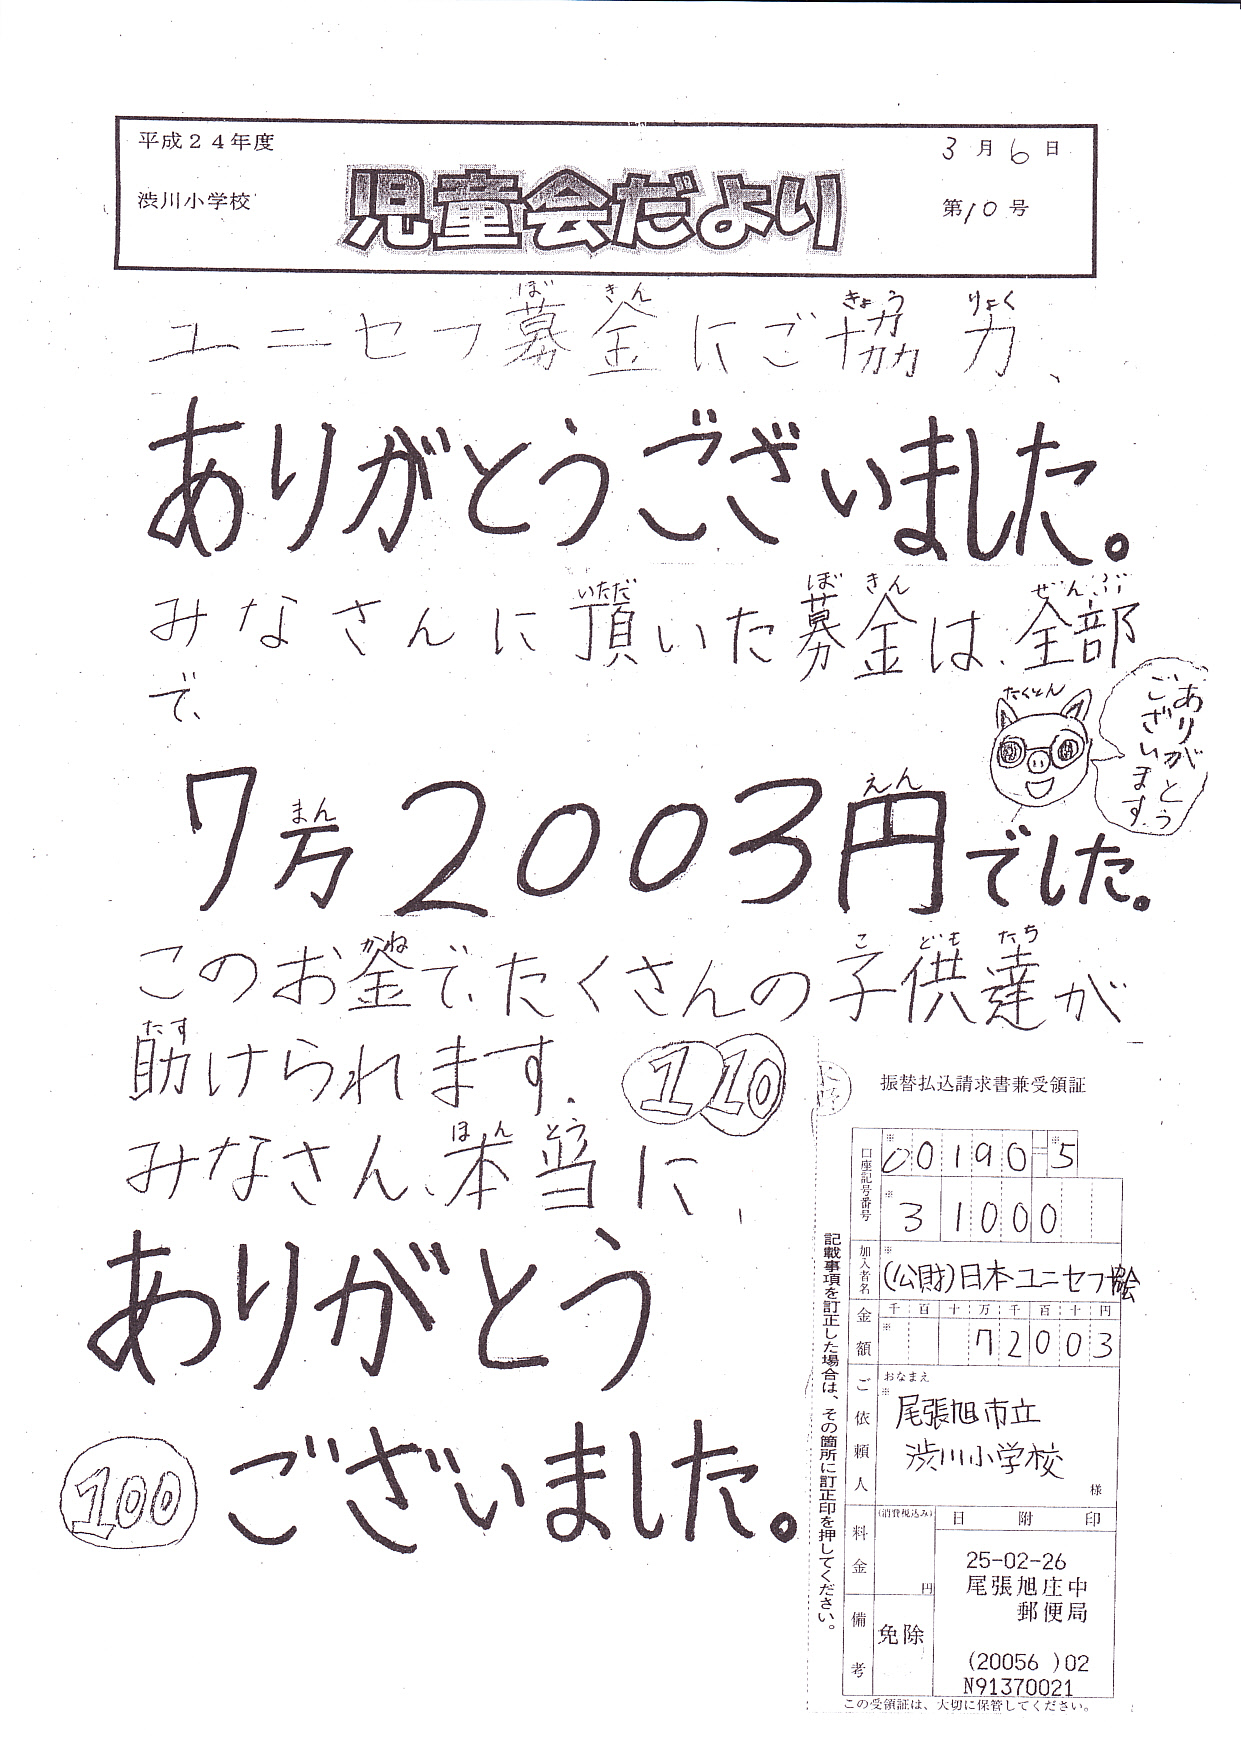 平成２４年度
渋川小学校
児童会だより
3月6日
第10号
ぼ きん きょう りょく
ユニセフ募金にご協力、
ありがとうございました。
いただ ぼ きん ぜんぶ
みなさんに頂いた募金は、全部
で、
たくとん
ありがとう
ございます。
まん えん
7万2003円でした。
かね こ ども たち
このお金で、たくさんの子供達が
たす
助けられます。
1 10
ほん とう
みなさん、本当に、
ありがとう
100
ございました。
振替払込請求書兼受領証
口座記号番号
※00190-※5
※31000
加入者名
※(公財)日本ユニセフ協会
金額
千百十万千百十円
※72003
ご依頼人
おなまえ
※
尾張旭市立
渋川小学校
様
料金
(消費税込み)
円
日附印
備考
免除
25-02-26
尾張旭庄中
郵便局
(20056 )02
N91370021
記載事項を訂正した場合は、その箇所に訂正印を押してください。
この受領証は、大切に保管してください。